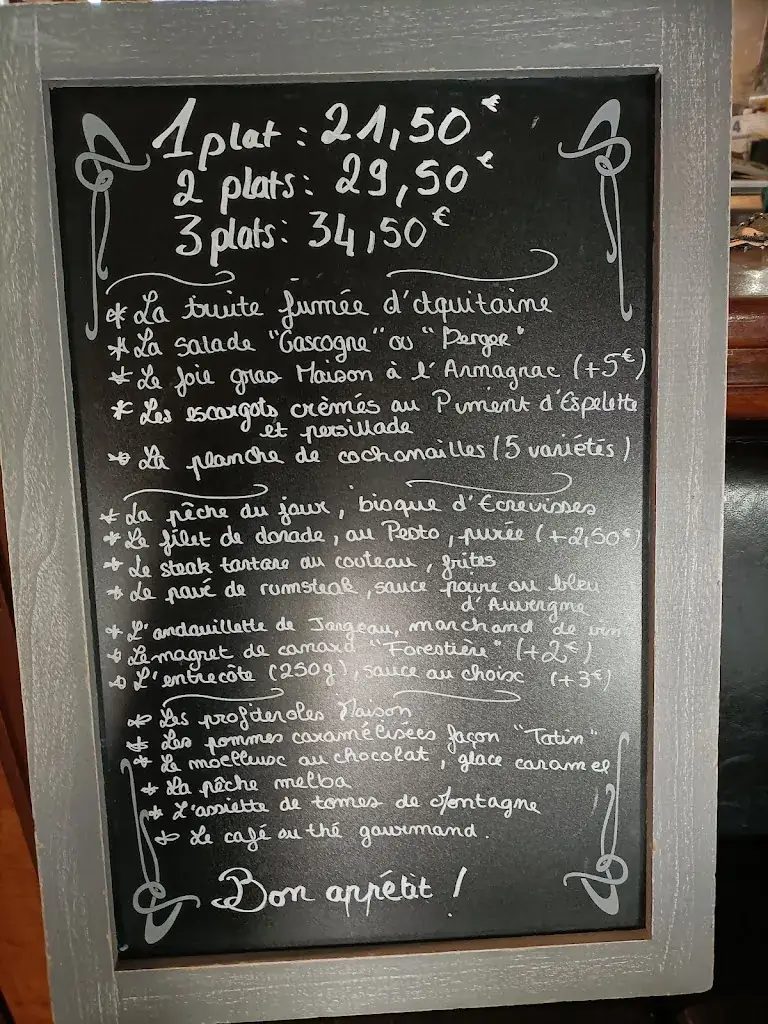 1 plat : 21,50€
2 plats : 29,50€
3 plats : 34,50€
* La truite fumée d'Aquitaine
* La salade "Gascogne" ou "Berger"
* Le foie gras Maison à l'Armagnac (+5€)
* Les escargots crèmés au Piment d'Espelette
et persillade
* La planche de cochonailles (5 variétés)
* La pêche du jour, bisque d'Ecrevisses
* Le filet de dorade, au Pesto, purée (+2,50€)
* Le steak tartare au couteau, frites
* Le pavé de rumsteak, sauce poivre ou bleu
d'Auvergne
* L'andouillette de Jargeau, marchand de vin
* Le magret de canard "Forestière" (+2€)
* L'entrecôte (250g), sauce au choix (+3€)
* Les profiteroles Maison
* Les pommes caramélisées façon "Tatin"
* Le moelleux au chocolat, glace caramel
* La pêche melba
* L'assiette de tomes de Montagne
* Le café ou thé gourmand.
Bon appétit !